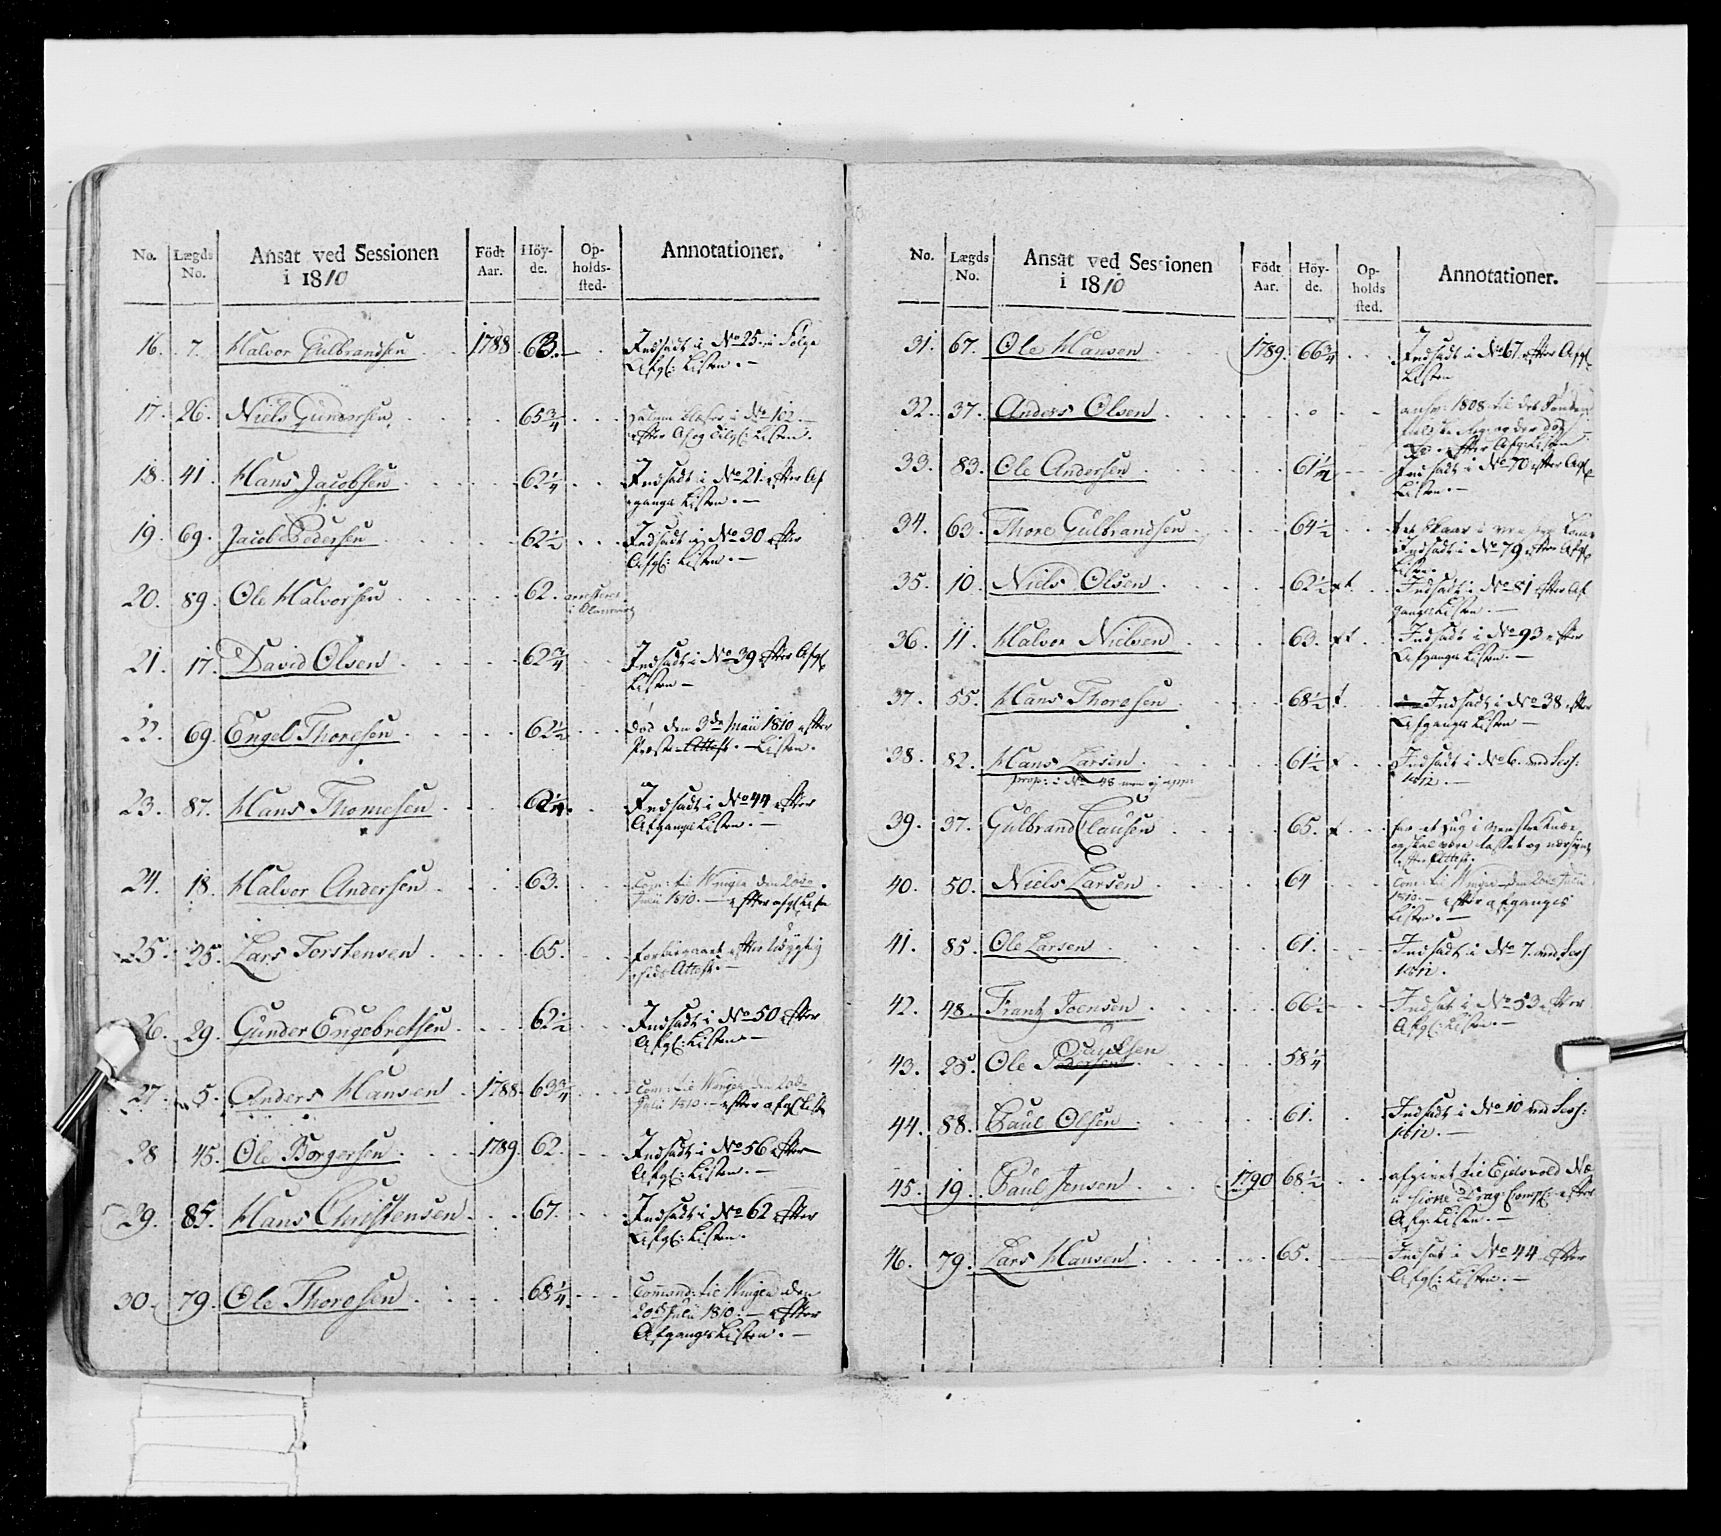 No. Lægds No. Ansat ved Sessionen i 1810 Födt Aar. Höyde. Opholdssted. Annotationer.
16. 7. Halvor Gulbrandsen 1788 63. Indsadt i No 25. i Følge
Afg: Listen.
17. 26. Niels Gundersen 65 3/4 i No 102.
efter Af og Tilg: Listen.
18. 41. Hans Jacobsen 62 1/4 Indsadt i No 21. efter Af
gangs Listen.
19. 69. Jacob Pedersen 62 1/2 Indsadt i No 30 efter
Afg: Listen.
20. 89. Ole Halvorsen 62.
21. 17. David Olsen 62 3/4 Indsadt i No 39 efter Afg:
Listen
22. 69. Engel Thoresen 62 1/2 død den 3de Maii 1810 efter
Præste Attest. Listen.
23. 87. Hans Thomesen Indsadt i No 44 efter
Afgangs Listen.
24. 18. Halvor Andersen 63. Com: til Vinger den 20de
Julii 1810. efter afg: Liste
25. 35. Lars Torstensen 65. efter
Attest.
26. 29. Gunder Engebretsen 62 1/2 Indsadt i No 50 efter
Afg: Listen
27. 5. Anders Hansen 1788 63 3/4 Com: til Vinger den 20de
Julii 1810. efter afg: Liste
28 45. Ole Borgersen 1789. 62. Indsadt i No 56 efter
Afg: Listen.
29. 85. Hans Christensen 67. Indsadt i No 62 efter
Afg: Listen.
30. 79. Ole Thoresen 68 1/4 Comand: til Vinger den
20de Julii 1810. efter
Afgangs Listen.
No. Lægds No. Ansat ved Sessionen i 1810 Födt Aar. Höyde. Opholds sted. Annotationer.
31. 67. Ole Hansen 1789. 66 3/4 Indsadt i No 67. efter Afg:
Listen
32. 37. Anders Olsen 1808 til det
efter Afg: Listen
33. 83. Ole Andersen 61 1/2 Indsadt i No 70 efter Afg:
Listen.
34. 63. Thore Gulbrandsen 64 1/2
Indsadt i No 79 efter Afg:
Listen.
35. 10. Niels Olsen 62 1/2 Indsadt i No 81 efter Af
gangs Listen.
36. 11. Halvor Nielsen 63. Indsadt i No 93 efter
Afgangs Listen.
37. 55. Hans Thoresen 68 1/2 Indsadt i No 38 efter
Afgangs Listen
38. 82. Hans Larsen 61 1/2 Indsadt i No 6. ved Sess:
1812.
i No 48
39. 37. Gulbrand Clausen 65. har et i venstre Knæe
og skal være og nærsynt
efter Attest.
40. 50. Niels Larsen 64 Com: til Vinger den 20de Julii
1810. efter afgangs
Listen.
41. 85. Ole Larsen 61. Indsadt i No 7. ved Sess
1812.
42. 48. Frantz Joensen 66 1/2 Indsat i No 53 efter
Afg: Listen.
43. 25. Ole Paulsen 58 1/4
44. 88. Paul Olsen 61. Indsadt i No 10 ved Sess:
1812.
45. 19. Paul Jensen 1790 68 1/2 afgivet til Eidsvold
Drag: Comp: efter
Afg: Listen.
46. 79. Lars Hansen 65. Indsat i No 44 efter
Afg: Listen.